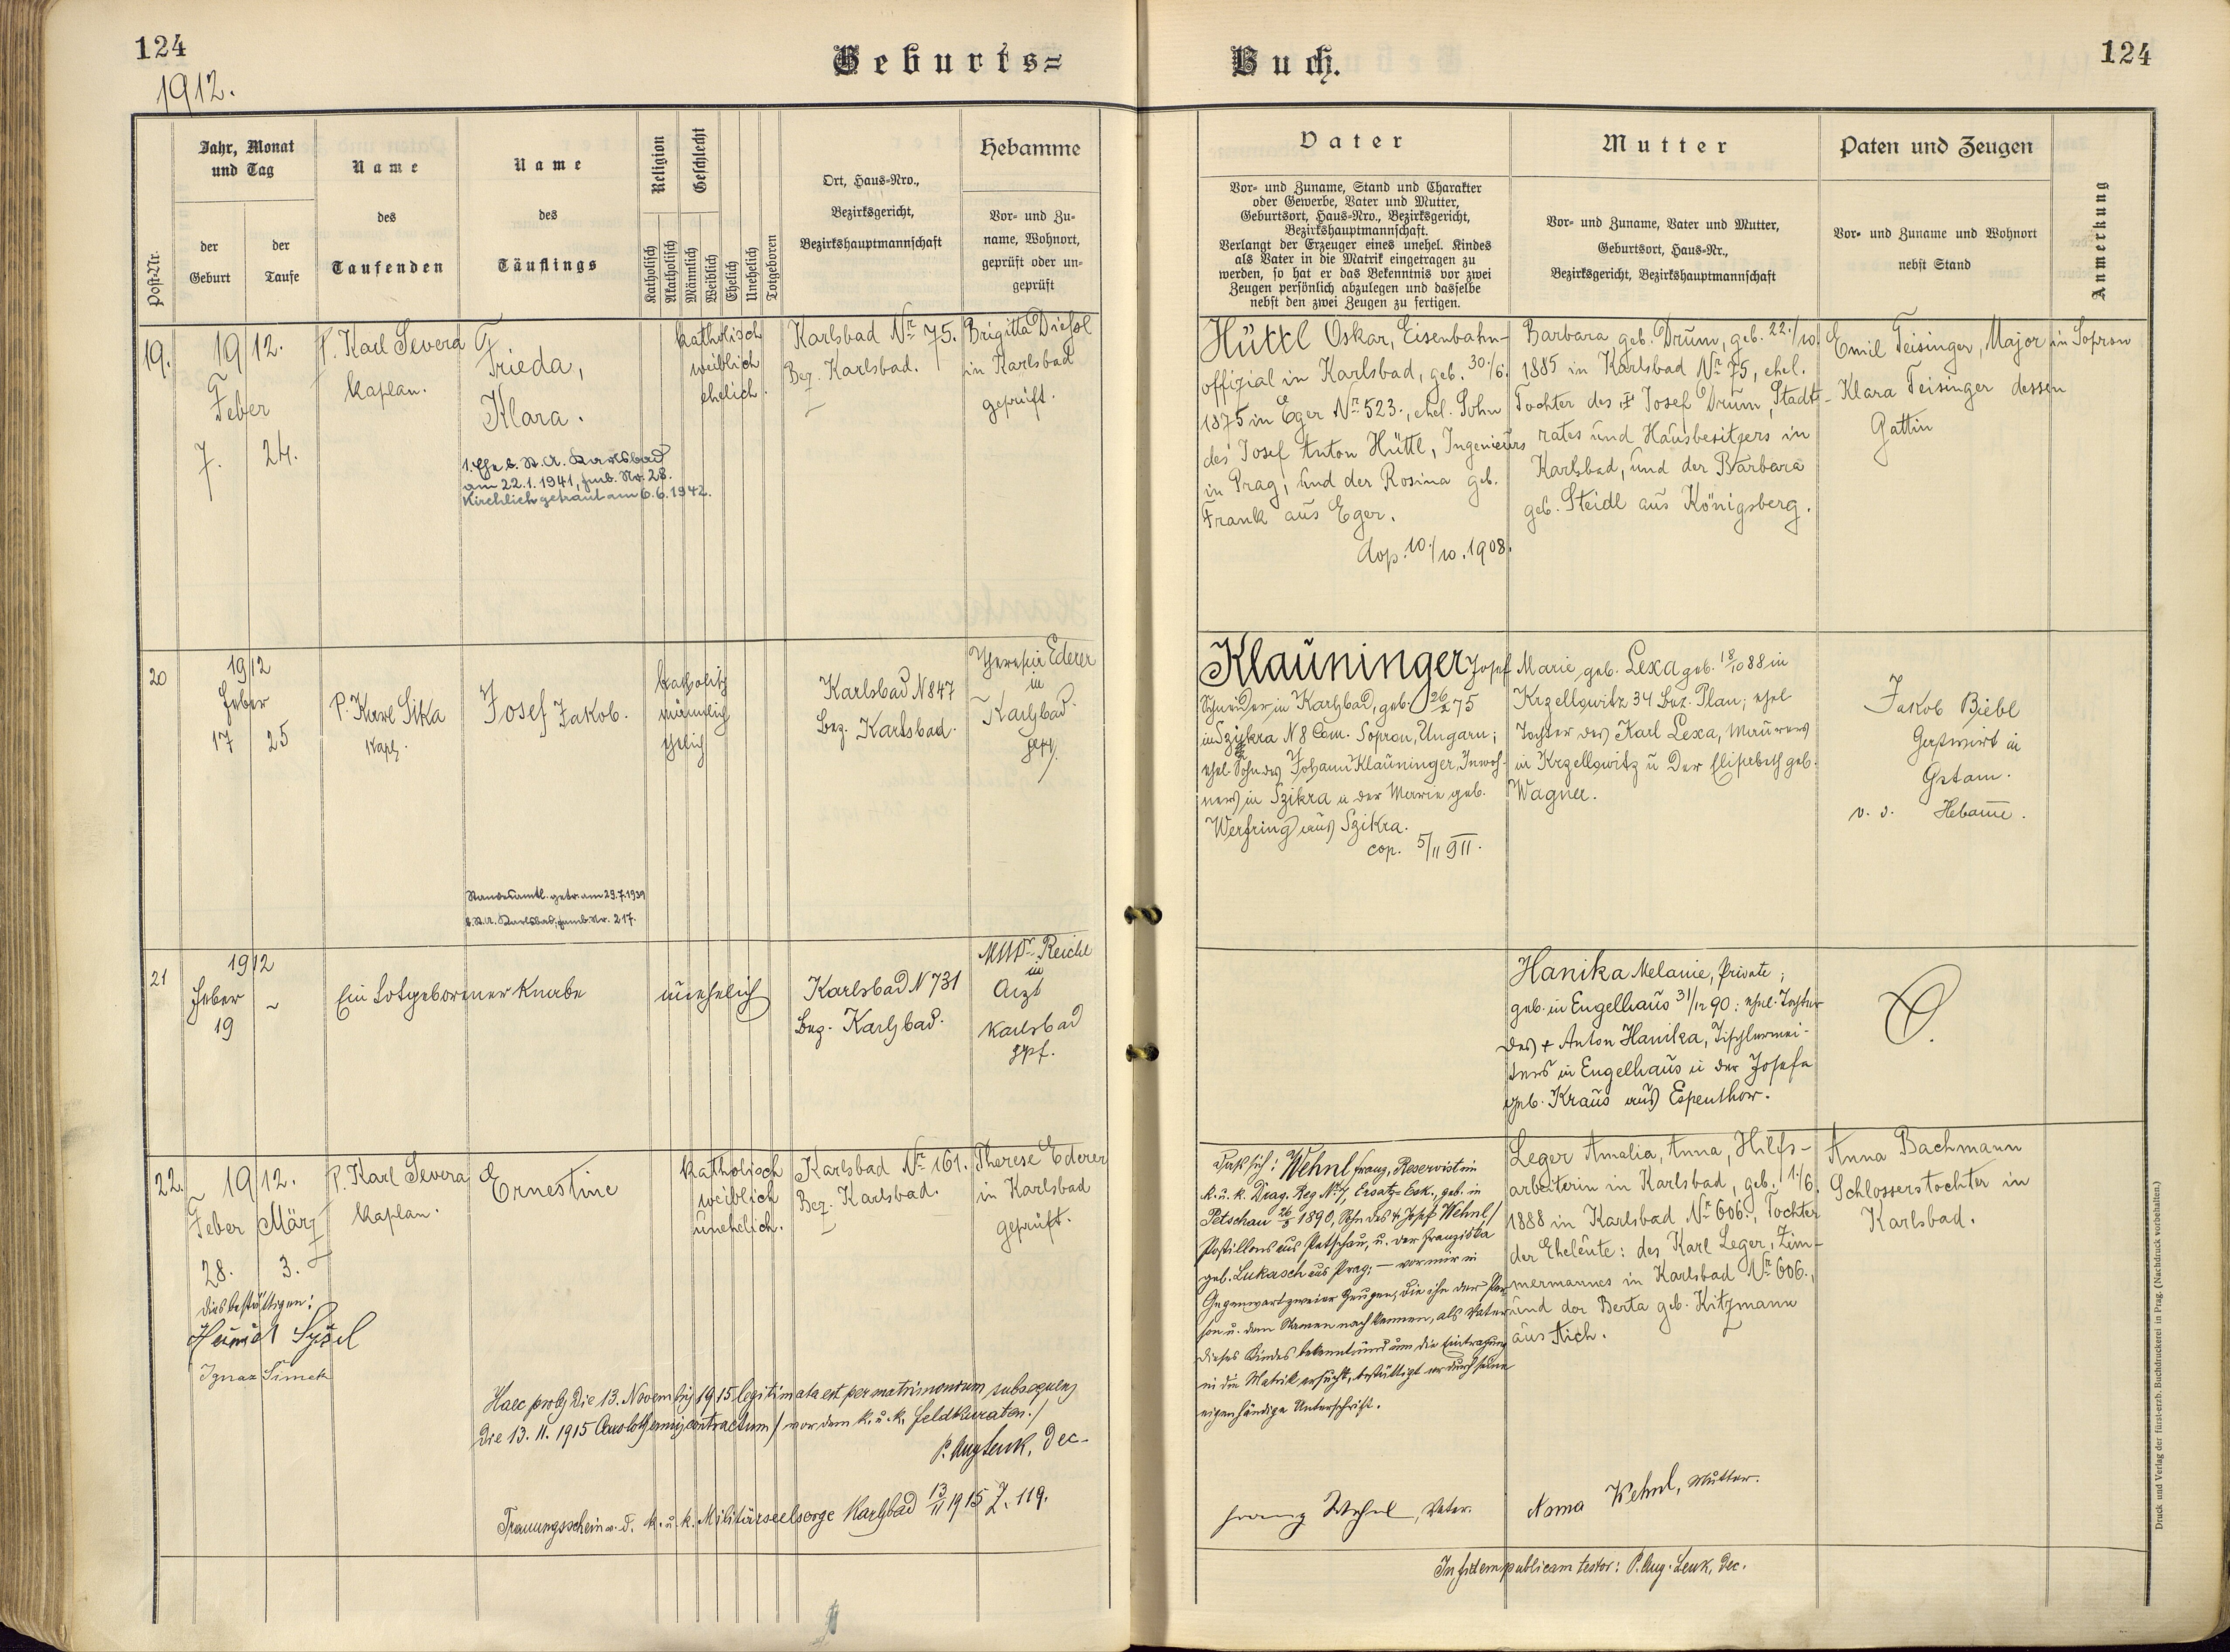 124
1912.
Geburts=
Buch.
124
Post-Nr.
Jahr, Monat
und Tag
der
Geburt
der
Taufe
Name
des
Taufenden
Name
des
Täuflings
Religion
Katholisch
Akatholisch
Geschlecht
Männlich
Weiblich
Ehelich
Unehelich
Totgeboren
Ort, Haus-Nro.,
Bezirksgericht,
Bezirkshauptmannschaft
Hebamme
Vor- und Zu-
name, Wohnort,
geprüft oder un-
geprüft
Vater
Vor- und Zuname, Stand und Charakter
oder Gewerbe, Vater und Mutter,
Geburtsort, Haus-Nro., Bezirksgericht,
Bezirkshauptmannschaft.
Verlangt der Erzeuger eines unehel. Kindes
als Vater in die Matrik eingetragen zu
werden, so hat er das Bekenntnis vor zwei
Zeugen persönlich abzulegen und dasselbe
nebst den zwei Zeugen zu fertigen.
Mutter
Vor- und Zuname, Vater und Mutter,
Geburtsort, Haus-Nr.,
Bezirksgericht, Bezirkshauptmannschaft
Paten und Zeugen
Vor- und Zuname und Wohnort
nebst Stand
Anmerkung
19.
1912.
Feber
7. 24.
P. Karl Severa
Kaplan.
Frieda,
Klara.
1. Ehe b. St. A. Karlsbad
am 22.1.1941, Fmb. No. 28.
Kirchlich getraut am 6.6.1942.
katholisch
weiblich
ehelich.
Karlsbad Nr. 75.
Bez. Karlsbad.
Brigitta Dießl
in Karlsbad
geprüft.
Hüttl Oskar, Eisenbahn-
offizial in Karlsbad, geb. 30./6.
1875 in Eger Nr. 523., ehel. Sohn
des Josef Anton Hüttl, Ingenieurs
in Prag, und der Rosina geb.
Frank aus Eger.
cop. 10./10. 1908.
Barbara geb. Drum, geb. 22./10.
1885 in Karlsbad Nr. 75, ehel.
Tochter des Josef Drum, Stadt-
rates und Hausbesitzers in
Karlsbad, und der Barbara
geb. Steidl aus Königsberg.
Emil Teisinger, Major in Sopron
Klara Teisinger dessen
Gattin
20
1912
Feber
17 25
P. Karl Sika
Kapl.
Josef Jakob.
Standesamtl. getr. am 29.7.1939
b. St. A. Karlsbad, Fmb. Nr. 217.
katholisch
männlich
ehelich
Karlsbad N 847
Bez. Karlsbad.
Theresia Ederer
in
Karlsbad.
gepr.
Klauninger Josef
Schneider in Karlsbad, geb. 26/2 75
in Szikra N 8 Com. Sopron, Ungarn;
ehel. Sohn des Johann Klauninger, Inwoh-
ners in Szikra u der Marie geb.
Werfring aus Szikra.
cop. 5/11 911.
Marie geb. Lexa geb. 18/10 88 in
Krzellowitz 34 Bez. Plan; ehel
Tochter des Karl Lexa, Maurers
in Krzellowitz u der Elisabeth geb.
Wagner.
Jakob Biebl
Gastwirt in
Gstam.
v. d. Hebame.
21
1912
Feber ~
19
Ein totgeborener Knabe
unehelich
Karlsbad N 731
Bez. Karlsbad.
MUDr. Reichl
in
Arzt
Karlsbad
gpf.
Hanika Melanie, Private;
geb. in Engelhaus 31/12 90: ehel. Tochter
des + Anton Hanika, Tischlermei-
sters in Engelhaus u der Josefa
geb. Kraus aus Espenthor.
22.
1912.
Feber März
28. 3.
dies bestättigen:
Ignaz Simek
P. Karl Severa
Kaplan.
Ernestine
katholisch
weiblich
unehelich.
Karlsbad Nr. 161.
Bez. Karlsbad.
Therese Ederer
in Karlsbad
geprüft.
Haec proles die 13. Novembris 1915 legitimata est per matrimonium subsequens
die 13. 11. 1915 Carolothermis contractum / vor dem k. u. k. Feldkuraten. /
P. Aug Lenk, Dec.
Trauungsschein v. d. k. u. k. Militärseelsorge Karlsbad 13/11 1915 Z. 119.
Daß sich: Wehnl Franz, Reservist im
k. u. k. Drag. Reg No. 7, Ersatz-Esk., geb. in
Petschau 26/8 1890, Sohn des + Josef Wehnl,
Postillons aus Petschau, u. der Franziska
geb. Lukasch aus Prag; – vor mir in
Gegenwart zweier Zeugen, die ihn der Per-
son u. dem Namen nach kennen, als Vater
dieses Kindes bekennt und um die Eintragung
in die Matrik ersucht, bestättigt er durch seine
eigenhändige Unterschrift.
Franz Wehnl, Vater.
Leger Amalia, Anna, Hilfs-
arbeiterin in Karlsbad, geb. 11./6.
1888 in Karlsbad Nr. 606., Tochter
der Eheleute: des Karl Leger, Zim-
mermannes in Karlsbad Nr. 606.,
und der Berta geb. Kitzmann
aus Aich.
Anna Wehnl, Mutter.
Anna Bachmann
Schlosserstochter in
Karlsbad.
In fidem publicam testor: P. Aug. Lenk, Dec.
Druck und Verlag der fürst-erzb. Buchdruckerei in Prag. (Nachdruck vorbehalten.)